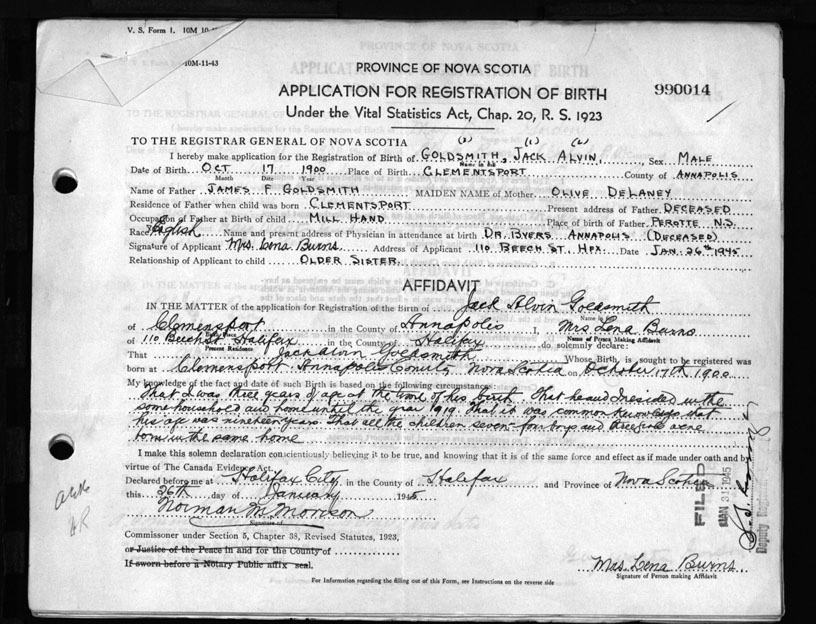 V. S. Form 1. 10M
10M-11-43
PROVINCE OF NOVA SCOTIA
APPLICATION FOR REGISTRATION OF BIRTH
990014
Under the Vital Statistics Act, Chap. 20, R. S. 1923
TO THE REGISTRAR GENERAL OF NOVA SCOTIA (3) (1) (2)
I hereby make application for the Registration of Birth of GOLDSMITH, JACK ALVIN, Sex MALE
Name in full
Date of Birth OCT 17 1900 Place of Birth CLEMENTSPORT County of ANNAPOLIS
Month Date Year
Name of Father JAMES F GOLDSMITH MAIDEN NAME of Mother OLIVE DELANEY
Residence of Father when child was born CLEMENTSPORT Present address of Father DECEASED
Occupation of Father at Birth of child MILL HAND Place of birth of Father PEROTTE N.S.
Race English Name and present address of Physician in attendance at birth DR. BYERS ANNAPOLIS (DECEASED)
Signature of Applicant Mrs. Lena Burns Address of Applicant 110 BEECH ST. HFX. Date JAN. 26th 1945
Relationship of Applicant to child OLDER SISTER
AFFIDAVIT
IN THE MATTER of the application for Registration of the Birth of Jack Alvin Goldsmith
Name in full
of Clemensport in the County of Annapolis I, Mrs Lena Burns
Name of Person Making Affidavit
of 110 Beech St Halifax in the County of Halifax do solemnly declare:
Present Residence
That Jack Alvin Goldsmith Whose Birth is sought to be registered was
born at Clemensport Annapolis County Nova Scotia on October 17th 1900
My knowledge of the fact and date of such Birth is based on the following circumstance:
That I was three years of age at the time of his birth. That he and I resided in the
same household and home until the year 1919. That it was common knowledge that
his age was nineteen years. That all the children seven - four boys and three girls were
born in the same home
I make this solemn declaration conscientiously believing it to be true, and knowing that it is of the same force and effect as if made under oath and by
virtue of The Canada Evidence Act.
Declared before me at Halifax City, in the County of Halifax and Province of Nova Scotia
this 26th day of January 1945
Norman M. Morrison
Signature of
Commissioner under Section 5, Chapter 38, Revised Statutes, 1923,
or Justice of the Peace in and for the County of
If sworn before a Notary Public affix seal.
FILED
JAN 31 1945
Deputy Registrar
Mrs. Lena Burns
Signature of Person making Affidavit
For Information regarding the filling out of this Form, see Instructions on the reverse side